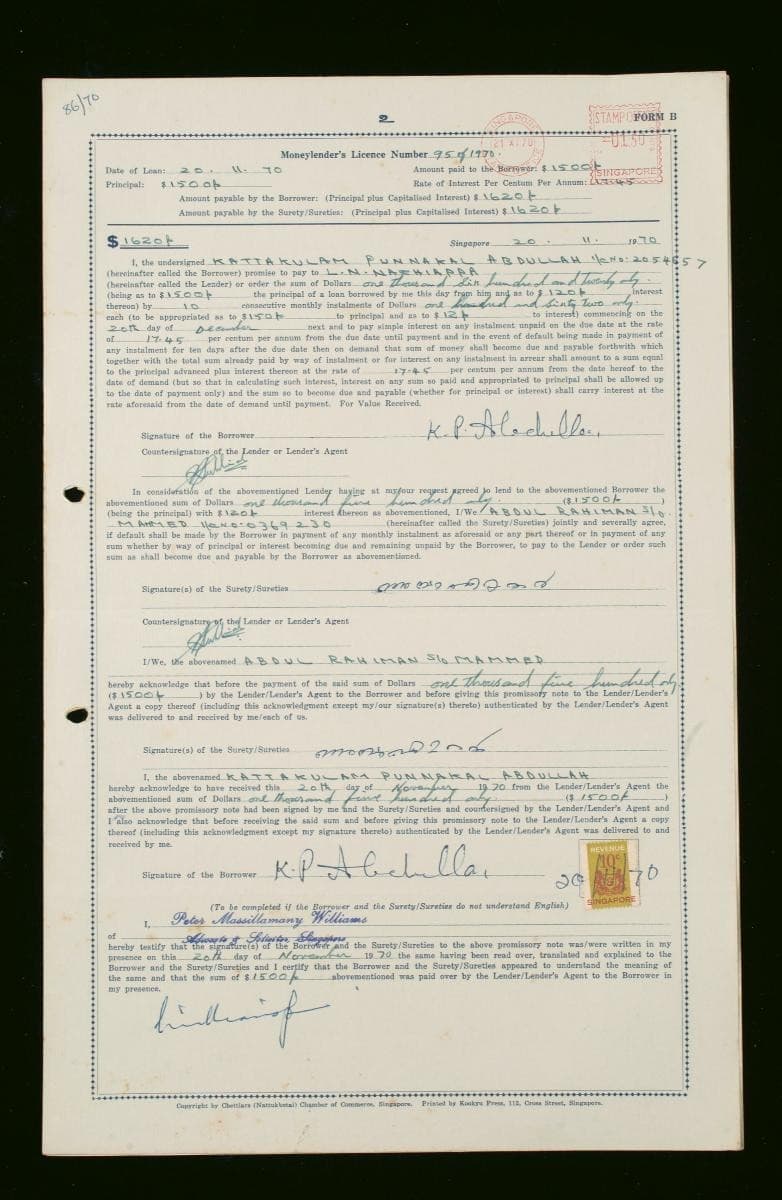 86/70
2
FORM B
SINGAPORE
21 XI 70
STAMP OFFICE
=01.50
SINGAPORE
Moneylender's Licence Number 95 of 1970.
Date of Loan: 20. 11. 70 Amount paid to the Borrower: $ 1500/-
Principal: $ 1500/- Rate of Interest Per Centum Per Annum: 17.45
Amount payable by the Borrower: (Principal plus Capitalised Interest) $ 1620/-
Amount payable by the Surety/Sureties: (Principal plus Capitalised Interest) $ 1620/-
$ 1620/- Singapore 20. 11. 1970
I, the undersigned KATTAKULAM PUNNAKAL ABDULLAH I/C NO: 2054657
(hereinafter called the Borrower) promise to pay to L.N. NACHIAPPA
(hereinafter called the Lender) or order the sum of Dollars one thousand six hundred and twenty only.
(being as to $ 1500/- the principal of a loan borrowed by me this day from him and as to $ 120/- interest
thereon) by 10 consecutive monthly instalments of Dollars one hundred and sixty two only.
each (to be appropriated as to $ 150/- to principal and as to $ 12/- to interest) commencing on the
20th day of December next and to pay simple interest on any instalment unpaid on the due date at the rate
of 17.45 per centum per annum from the due date until payment and in the event of default being made in payment of
any instalment for ten days after the due date then on demand that sum of money shall become due and payable forthwith which
together with the total sum already paid by way of instalment or for interest on any instalment in arrear shall amount to a sum equal
to the principal advanced plus interest thereon at the rate of 17.45 per centum per annum from the date hereof to the
date of demand (but so that in calculating such interest, interest on any sum so paid and appropriated to principal shall be allowed up
to the date of payment only) and the sum so to become due and payable (whether for principal or interest) shall carry interest at the
rate aforesaid from the date of demand until payment. For Value Received.
Signature of the Borrower K.P. Abdulla,
Countersignature of the Lender or Lender's Agent
In consideration of the abovementioned Lender having at my/our request agreed to lend to the abovementioned Borrower the
abovementioned sum of Dollars one thousand five hundred only ($ 1500/- )
(being the principal) with $ 120/- interest thereon as abovementioned, I/We ABDUL RAHIMAN S/O.
MAMMED I/C NO: 0369230 (hereinafter called the Surety/Sureties) jointly and severally agree,
if default shall be made by the Borrower in payment of any monthly instalment as aforesaid or any part thereof or in payment of any
sum whether by way of principal or interest becoming due and remaining unpaid by the Borrower, to pay to the Lender or order such
sum as shall become due and payable by the Borrower as abovementioned.
Signature(s) of the Surety/Sureties
Countersignature of the Lender or Lender's Agent
I/We, the abovenamed ABDUL RAHIMAN S/O MAMMED
hereby acknowledge that before the payment of the said sum of Dollars one thousand five hundred only
($ 1500/- ) by the Lender/Lender's Agent to the Borrower and before giving this promissory note to the Lender/Lender's
Agent a copy thereof (including this acknowledgment except my/our signature(s) thereto) authenticated by the Lender/Lender's Agent
was delivered to and received by me/each of us.
Signature(s) of the Surety/Sureties
I, the abovenamed KATTAKULAM PUNNAKAL ABDULLAH
hereby acknowledge to have received this 20th day of November 1970 from the Lender/Lender's Agent the
abovementioned sum of Dollars one thousand five hundred only. ($ 1500/- )
after the above promissory note had been signed by me and the Surety/Sureties and countersigned by the Lender/Lender's Agent and
I also acknowledge that before receiving the said sum and before giving this promissory note to the Lender/Lender's Agent a copy
thereof (including this acknowledgment except my signature thereto) authenticated by the Lender/Lender's Agent was delivered to and
received by me.
Signature of the Borrower K.P. Abdulla,
20 11 70
REVENUE
10c
SINGAPORE
(To be completed if the Borrower and the Surety/Sureties do not understand English)
I, Peter Massillamany Williams
of Advocate & Solicitor, Singapore
hereby testify that the signature(s) of the Borrower and the Surety/Sureties to the above promissory note was/were written in my
presence on this 20th day of November 1970 the same having been read over, translated and explained to the
Borrower and the Surety/Sureties and I certify that the Borrower and the Surety/Sureties appeared to understand the meaning of
the same and that the sum of $ 1500/- abovementioned was paid over by the Lender/Lender's Agent to the Borrower in
my presence.
Copyright by Chettiars (Nattukkotai) Chamber of Commerce, Singapore. Printed by Kookyu Press, 112, Cross Street, Singapore.